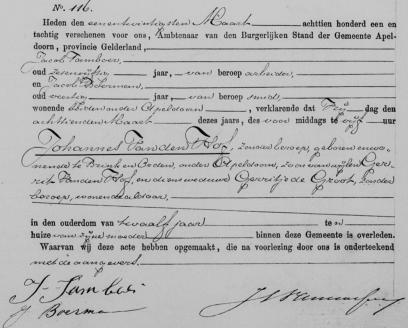 No. 116.
Heden den eenentwintigsten Maart achttien honderd een en
tachtig verschenen voor ons, Ambtenaar van den Burgerlijken Stand der Gemeente Apel-
doorn, provincie Gelderland,
Jacob Tamboer,
oud jaar, van beroep arbeider
en Jacob Boerman,
oud veertig jaar, van beroep smid,
wonende beiden onder Apeldoorn, verklarende dat dag den
achttienden Maart dezes jaars, des voor middags te vijf uur
Johannes van den Hof, zonder beroep, geboren en wo-
nende te Brink en Orden, onder Apeldoorn, zoon van wijlen Ger-
rit van den Hof, en diens weduwe Gerritje de Groot, zonder
beroep, wonende aldaar,
in den ouderdom van twaalf jaar te n
huize van zijne moeder binnen deze Gemeente is overleden.
Waarvan wij deze acte hebben opgemaakt, die na voorlezing door ons is onderteekend
met de aangevers.
J. Tamboer
J Boerman